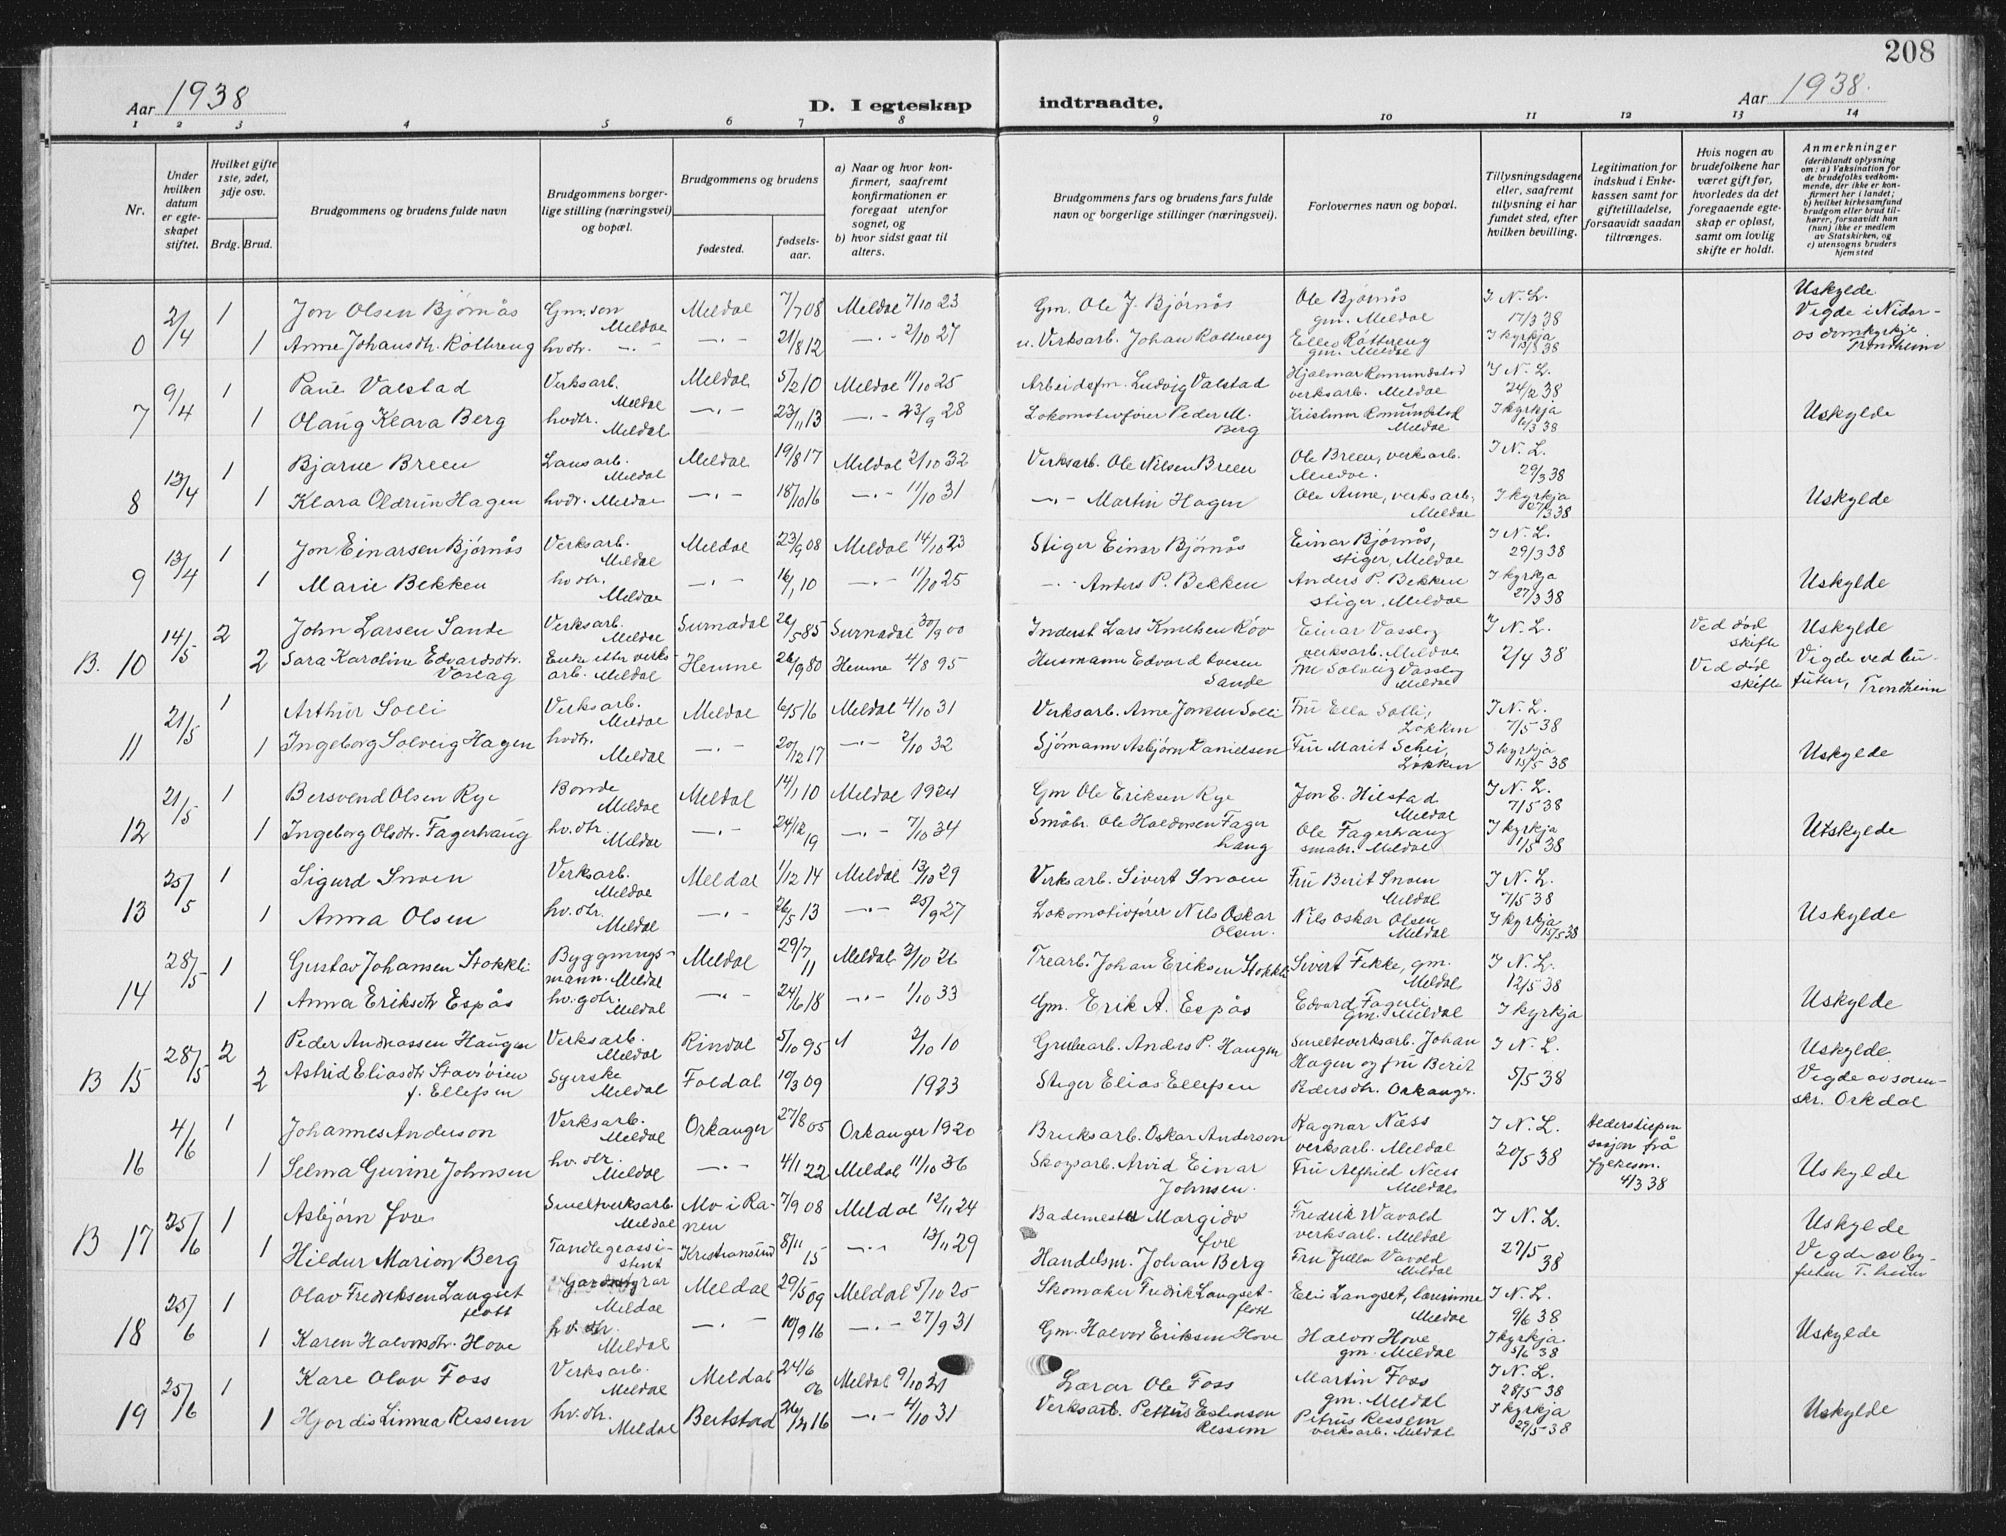 208
Aar 1938
D. I egteskap indtraadte.
Aar 1938.
1 2 3 4 5 6 7 8 9 10 11 12 13 14
Nr.
Under hvilken datum er egteskapet stiftet.
Hvilket gifte 1ste, 2det, 3dje osv.
Brdg. Brud.
Brudgommens og brudens fulde navn
Brudgommens borgerlige stilling (næringsvei) og bopæl.
Brudgommens og brudens
fødested.
fødselsaar.
a) Naar og hvor konfirmert, saafremt konfirmationen er foregaat utenfor sognet, og
b) hvor sidst gaat til alters.
Brudgommens fars og brudens fars fulde navn og borgerlige stillinger (næringsvei).
Forlovernes navn og bopæl.
Tillysningsdagene eller, saafremt tillysning ei har fundet sted, efter hvilken bevilling.
Legitimation for indskud i Enkekassen samt for giftetilladelse, forsaavidt saadan tiltrænges.
Hvis nogen av brudefolkene har været gift før, hvorledes da det foregaaende egteskap er opløst, samt om lovlig skifte er holdt.
Anmerkninger
(deriblandt oplysning om: a) Vaksination for de brudefolks vedkommende, der ikke er konfirmert her i landet; b) hvilket kirkesamfund brudgom eller brud tilhører, forsaavidt han (hun) ikke er medlem av Statskirken, og c) utensogns bruders hjemsted
2/4 1 Jon Olsen Bjørnås Gm.søn Meldal Meldal 7/7 08 Meldal 7/10 23 Gm. Ole J. Bjørnås Ole Bjørnås gm. Meldal I N. L. 17/3 38 Uskylde Vigde i Nidaros domkyrkje. Trondheim
1 Anne Johansdtr. Rottreng hvdtr. -"- -"- 21/8 12 -"- 2/10 27 u. Verksarb. Johan Rottreng Ellev Rottreng gm. Meldal I kyrkja 13/3 38
7 9/4 1 Paul Valstad Verksarb. Meldal Meldal 5/2 10 Meldal 11/10 25 Arbeidsfm. Ludvig Valstad Hjalmar Romundstad verksarb. Meldal I N. L. 24/2 38
1 Olaug Klara Berg hvdtr. Meldal -"- 23/11 13 -"- 23/9 28 Lokomotivfører Peder M. Berg Kristmar Romundstad Meldal I kyrkja 6/3 38 Uskylde
8 13/4 1 Bjarne Breen Lausarb. Meldal Meldal 19/8 17 Meldal 2/10 32 Verksarb. Ole Nilsen Breen Ole Breen, verksarb. Meldal. I N. L. 29/3 38
1 Klara Oldrun Hagen hvdt. Meldal -"- 18/10 16 -"- 11/10 31 -"- Martin Hagen Ole Aune, verksarb. Meldal I kyrkja 27/3 38 Uskylde
9 13/4 1 Jon Einarsen Bjørnås Verksarb. Meldal Meldal 23/9 08 Meldal 14/10 23 Stiger Einar Bjørnås Einar Bjørnås, stiger, Meldal I N. L. 29/3 38
1 Marie Bekken hvdtr. Meldal -"- 16/1 10 -"- 11/10 25 -"- Anders P. Bekken Anders P. Bekken stiger. Meldal I kyrkja 27/3 38 Uskylde
B. 10 14/5 2 John Larsen Sande Verksarb. Meldal Surnadal 26/5 85 Surnadal 30/9 00 Inderst Lars Knutsen Røv Einar Vasslog verksarb. Meldal I N. L. Ved død skifte Uskylde
2 Sara Karoline Edvardsdtr. Enke etter verksarb. Meldal Hemne 26/9 80 Hemne 4/8 95 Husmann Edvard Sande Vasslog Meldal 2/4 38 Ved død skifte Vigde ved bufuten, Trondheim
11 21/5 1 Arthur Solli Verksarb. Meldal Meldal 6/5 16 Meldal 4/10 31 Verksarb. Arne Jonsen Solli Fru Ella Solli, Løkken I N. L. 7/5 38
1 Ingeborg Solveig Hagen hvdtr. Meldal -"- 20/12 17 -"- 2/10 32 Sjømann Asbjørn Danielsen Fru Marit Schei, Løkken I kyrkja 15/5 38 Uskylde
12 21/5 1 Bersvend Olsen Rye Bonde Meldal Meldal 14/1 10 Meldal 1924 Gm Ole Eriksen Rye Jon E. Hilstad Meldal I N. L. 7/5 38
1 Ingeborg Olsdtr. Fagerhaug hv.dtr. Meldal -"- 24/12 19 -"- 7/10 34 Småbr. Ole Haldorsen Fagerhaug Ole Fagerhaug småbr. Meldal I kyrkja 1/5 38 Utskylde
13 25/5 1 Sigurd Snoen Verksarb. Meldal Meldal 1/12 14 Meldal 13/10 29 Verksarb. Sivert Snoen Fru Berit Snoen Meldal I N. L. 7/5 38
1 Anna Olsen hv.dtr. Meldal -"- 26/5 13 -"- 25/9 27 Lokomotivfører Nils Oskar Olsen. Nils Oskar Olsen Meldal I kyrkja 15/5 38 Uskylde
14 28/5 1 Gustav Johansen Stokkli Byggningsmann. Meldal Meldal 29/7 11 Meldal 3/10 26 Trearb. Johan Eriksen Stokkli Sivert Fikke, gm. Meldal I N. L. 12/5 38
1 Anna Eriksdtr Espås hv.gdtr. Meldal -"- 24/6 18 -"- 1/10 33 Gm. Erik A. Espås Edvard Fagerli Gm. Meldal I kyrkja Uskylde
B 15 28/5 2 Peder Andreassen Haugen Verksarb. Meldal Rindal 5/10 95 2/10 10 Grubearb. Anders P. Haugen Smelteverksarb. Johan Hagen og fru Berit I N. L. Uskylde.
2 Astrid Eliasdtr Stavsøien f. Ellefsen Syerske Meldal Foldal 10/3 09 1923 Stiger Elias Ellefsen Pedersdtr. Orkanger. 5/5 38 Vigde av sorenskr. Orkdal
16 4/6 1 Johannes Anderson Verksarb. Meldal Orkanger 27/8 05 Orkanger 1920 Bruksarb. Oskar Anderson Ragnar Næss verksarb. Meldal I N. L. 20/5 38 Aldersdispensasjon frå fylkesm. 4/3 38
1 Selma Gurine Johnsen hv.dtr. Meldal -"- 4/1 22 Meldal 11/10 36 Skogsarb. Arvid Einar Johnsen. Fru Alfhild Næss Meldal Uskylde
B 17 25/6 1 Asbjørn Øvre Smelteverksarb. Meldal Mo i Ranen 7/9 08 Meldal 12/11 24 Bademester Margido Øvre Fredrik Wavold verksarb. Meldal I N. L. 27/5 38 Uskylde
1 Hildur Marion Berg Tandlegeassistent Kristiansund 8/11 15 -"- 13/11 29 Handelsm. Johan Berg Fru Julla Vavold Meldal Vigde av byfuten T.heim
18 25/6 1 Olav Fredriksen Langsetflott Meldal Meldal 29/5 09 Meldal 5/10 25 Skomaker Fredrik Langsetflott Eli Langset, lærerinne Meldal I N. L. 9/6 38
1 Karen Halvorsdtr. Hove hv.dtr. Meldal -"- 10/9 16 -"- 27/9 31 Gm. Halvor Eriksen Hove Halvor Hove gm. Meldal I kyrkja. 5/6 38 Uskylde
19 25/6 1 Kåre Olav Foss Verksarb. Meldal Meldal 24/6 06 Meldal 9/10 21 Lærar Ole Foss Martin Foss gm. Meldal I N. L. 28/5 38
1 Hjordis Linnea Ressem hv.dtr. Meldal 26/12 16 -"- 4/10 31 Verksarb. Petrus Ressem Petrus Ressem verksarb. Meldal I kyrkja 29/5 38 Uskylde